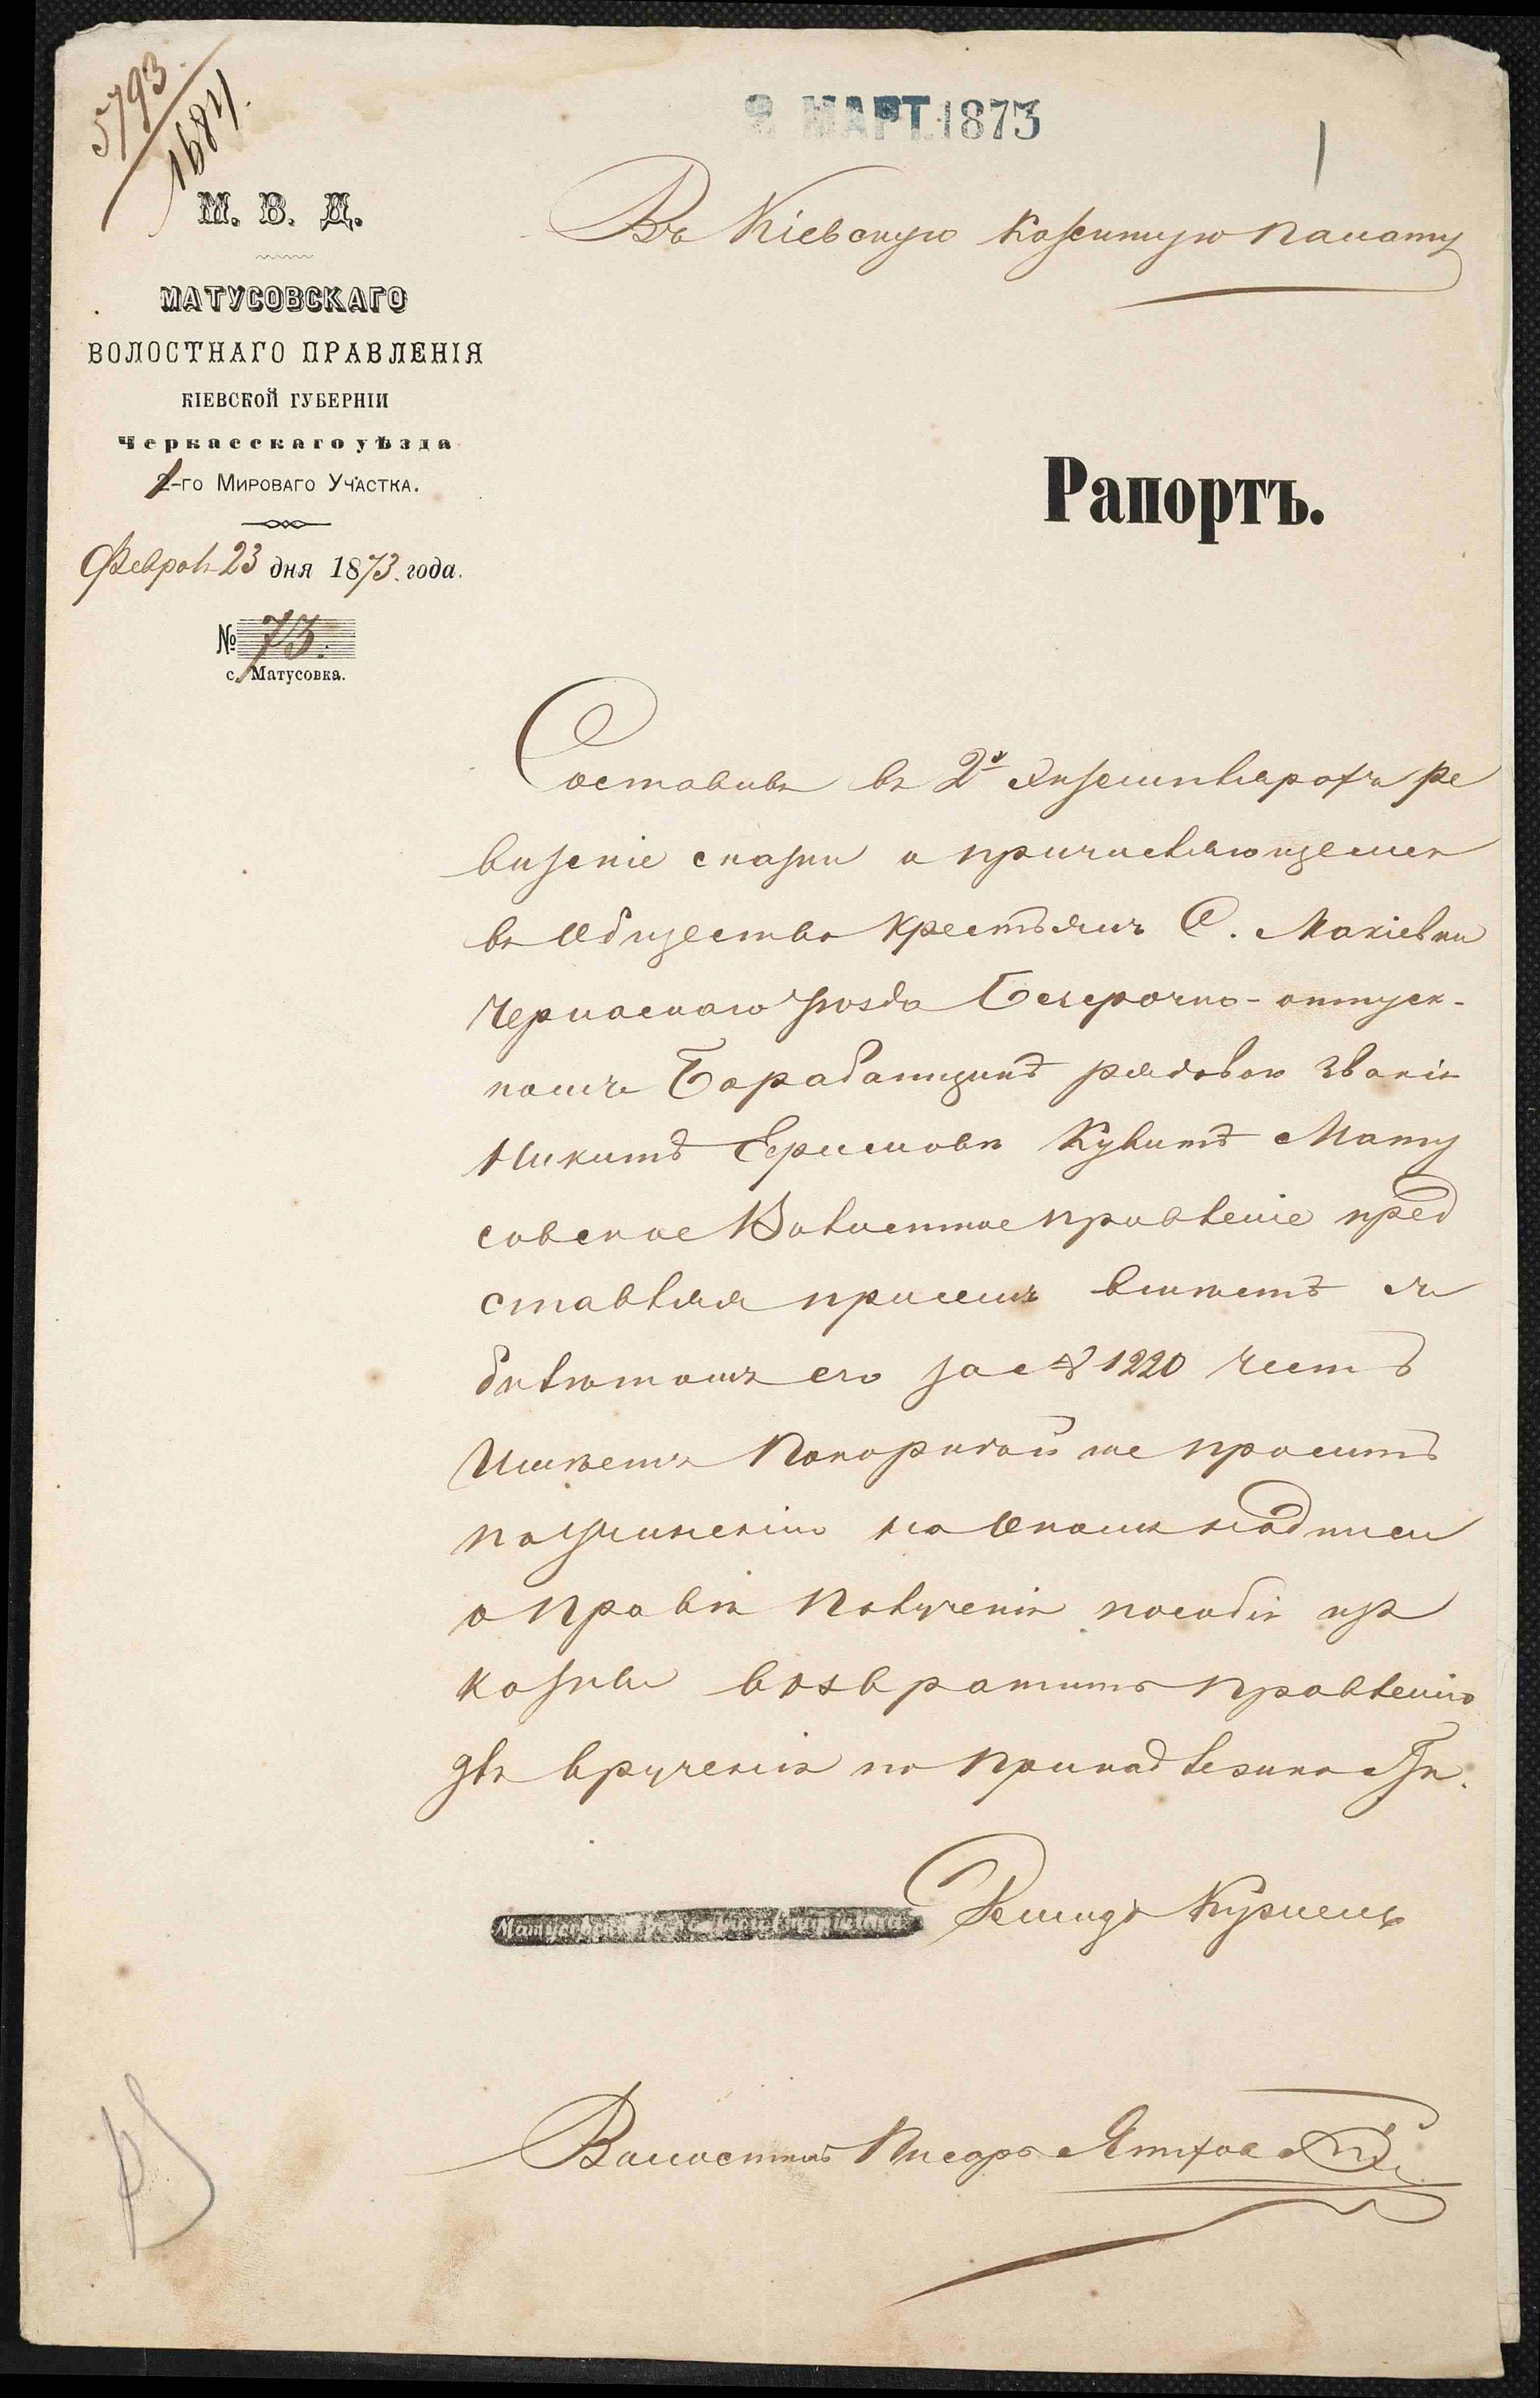 5793
1684.
2 МАРТ. 1873
1
М. В. Д.
МАТУСОВСКАГО
ВОЛОСТНАГО ПРАВЛЕНІЯ
КІЕВСКОЙ ГУБЕРНІИ
Черкасскаго уѣзда
-го Мироваго Участка.
Феврал 23 дня 1873. года.
№ 73.
с. Матусовка.
Въ Кіевскую Казенную Палату
Рапортъ.
Составивъ въ 2х экземплярахъ ре
визскіе сказки о причисляющемся
въ Общество крестьянъ С. Макіевки
Черкаскаго уѣзда Безсрочно-отпуск-
номъ Барабанщикѣ рядоваго званія
Никитѣ Кулитѣ Мату
совское Волостное правленіе пред
ставляя при семъ вместѣ съ
билѣтомъ его за № 1220 честь
имѣетъ Покорнѣйше просить
по учиненію на Ономъ надписи
о правѣ Полученія пособія изъ
казны возвратить правленію
для врученія по принадлежности.
Матусовскій Волостной Старшина Демидъ
Волостной Писарь